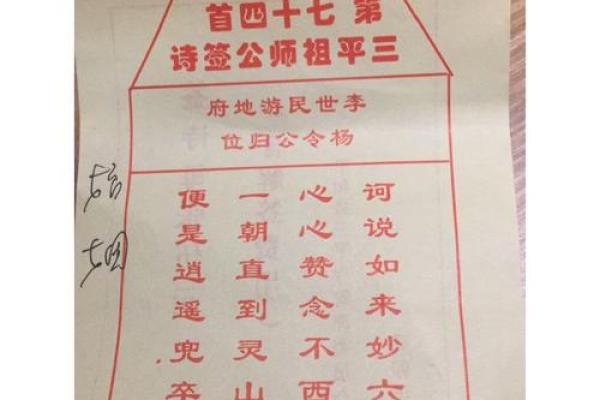 第七十四首
三平祖师公签诗
李世民游地府
杨令公归位
诃说如来妙六
心心赞念不西
一朝直到灵山
便是逍遥兜